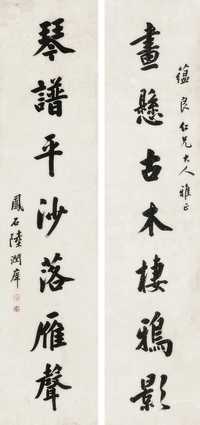 蕴良仁兄大人雅正
畫懸古木棲鴉影
琴譜平沙落雁聲
鳳石陸潤庠